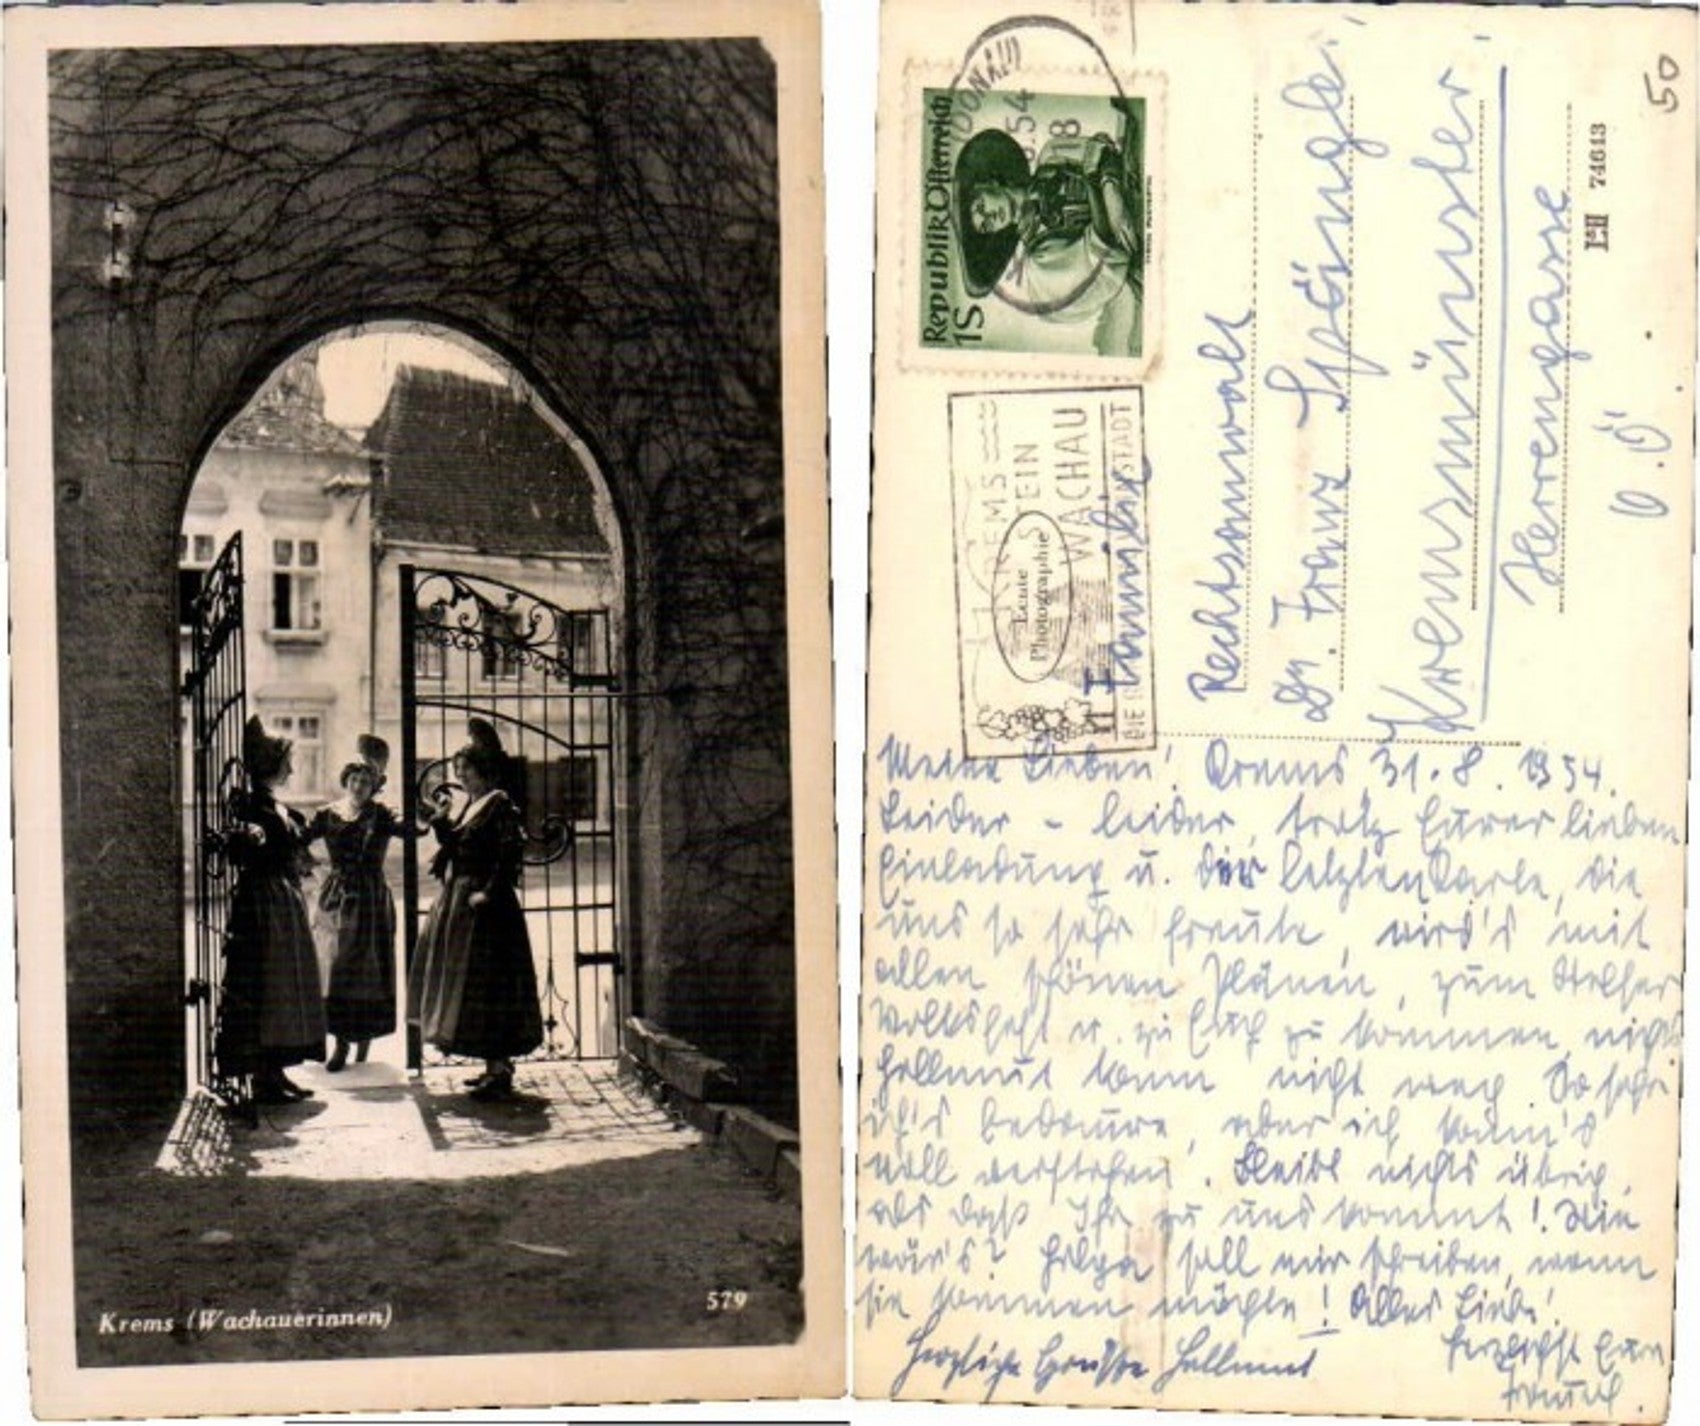 Krems (Wachauerinnen)
579
(DONAU)
.54
18
Republik Österreich
1S
KREMS
STEIN
WACHAU
DIE STADT
Echte
Photographie
Familie
Rechtsanwalt
Dr. Franz Spöngler
Kremsmünster
Herrengasse
O.Ö.
PH 74613
50
Meine Lieben! Krems, 31.8.1954.
Leider - leider, trotz Eurer lieben
Einladung u. der letzten Karte, die
uns so sehr freute, wird's mit
allen schönen Plänen, zum
Volksfest u. zu Euch zu kommen, nichts
Hellmut kann nicht weg. So sehr
ich's bedaure, aber ich kann's
voll verstehen. Bleibt nichts übrig,
als daß Ihr zu uns kommt! Wie
wär's? Helga soll mir schreiben, wann
sie kommen möchte! Alles Liebe!
Herzliche Grüße Hellmut
herzlichst Eure